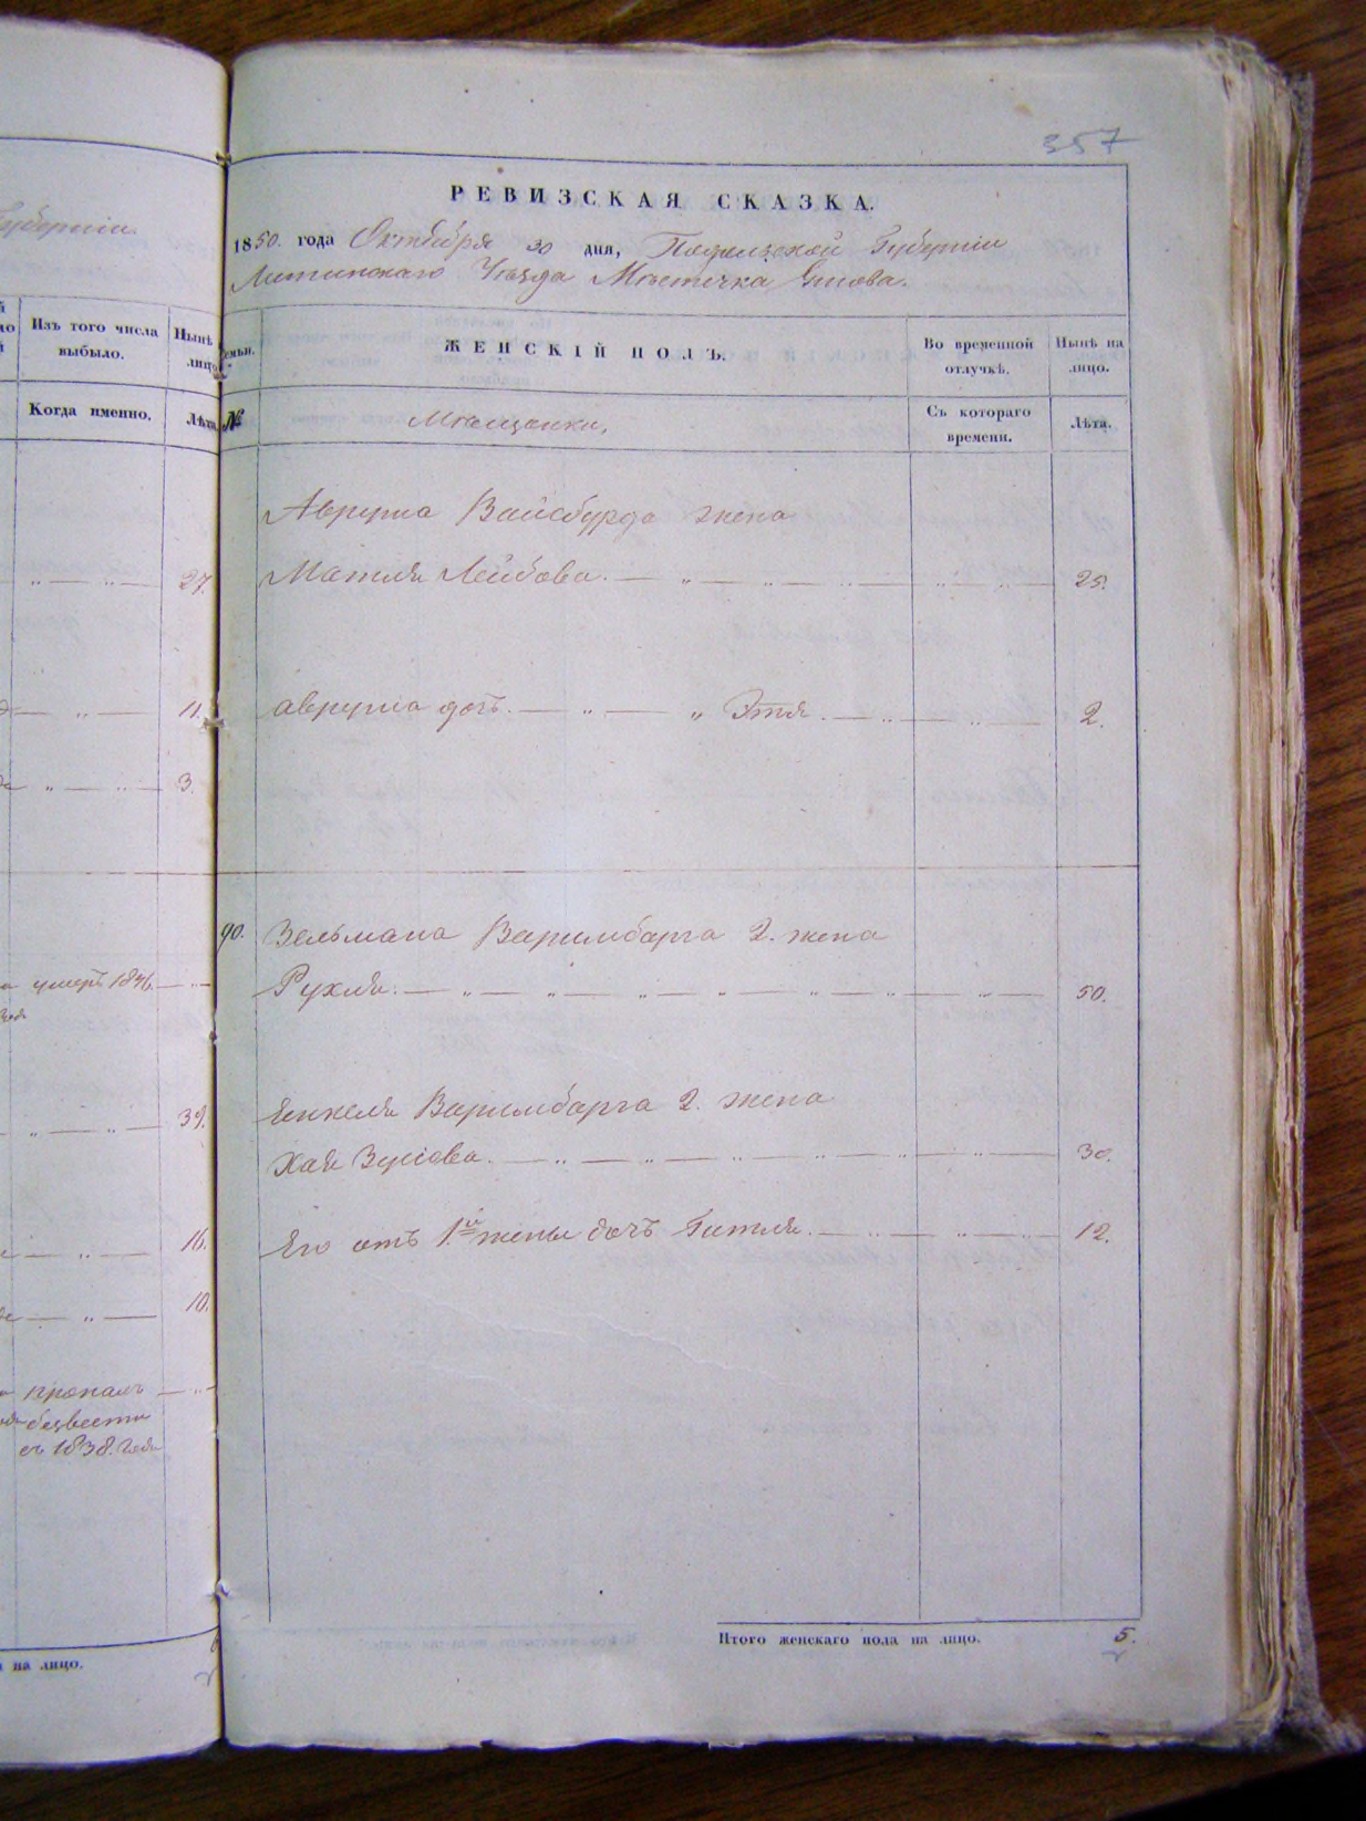 357
Губерніи.
й
Изъ того числа
выбыло.
Нынѣ
лицо
Когда именно.
Лѣта
27.
11.
3.
умеръ 1846.
39.
16.
10.
пропалъ
безвести
съ 1838. года
на лицо.
РЕВИЗСКАЯ СКАЗКА.
1850. года Октября 30 дня, Подольской Губерніи
Литинскаго Уѣзда Мѣстечка
Семьи.
ЖЕНСКІЙ ПОЛЪ.
Во временной
отлучкѣ.
Нынѣ на
лицо.
№
Мѣщанки,
Съ котораго
времени.
Лѣта.
Аврума Вайсбурда жена
Матля Лейбова. 25.
Аврума дочь. Этя. 2.
90. Зельмана Варимбарга 2. жена
Рухля. 50.
Янкеля Варимбарга 2. жена
Хая Зусіова. 30.
Его отъ 1й жены дочь Гитля. 12.
Итого женскаго пола на лицо. 5.